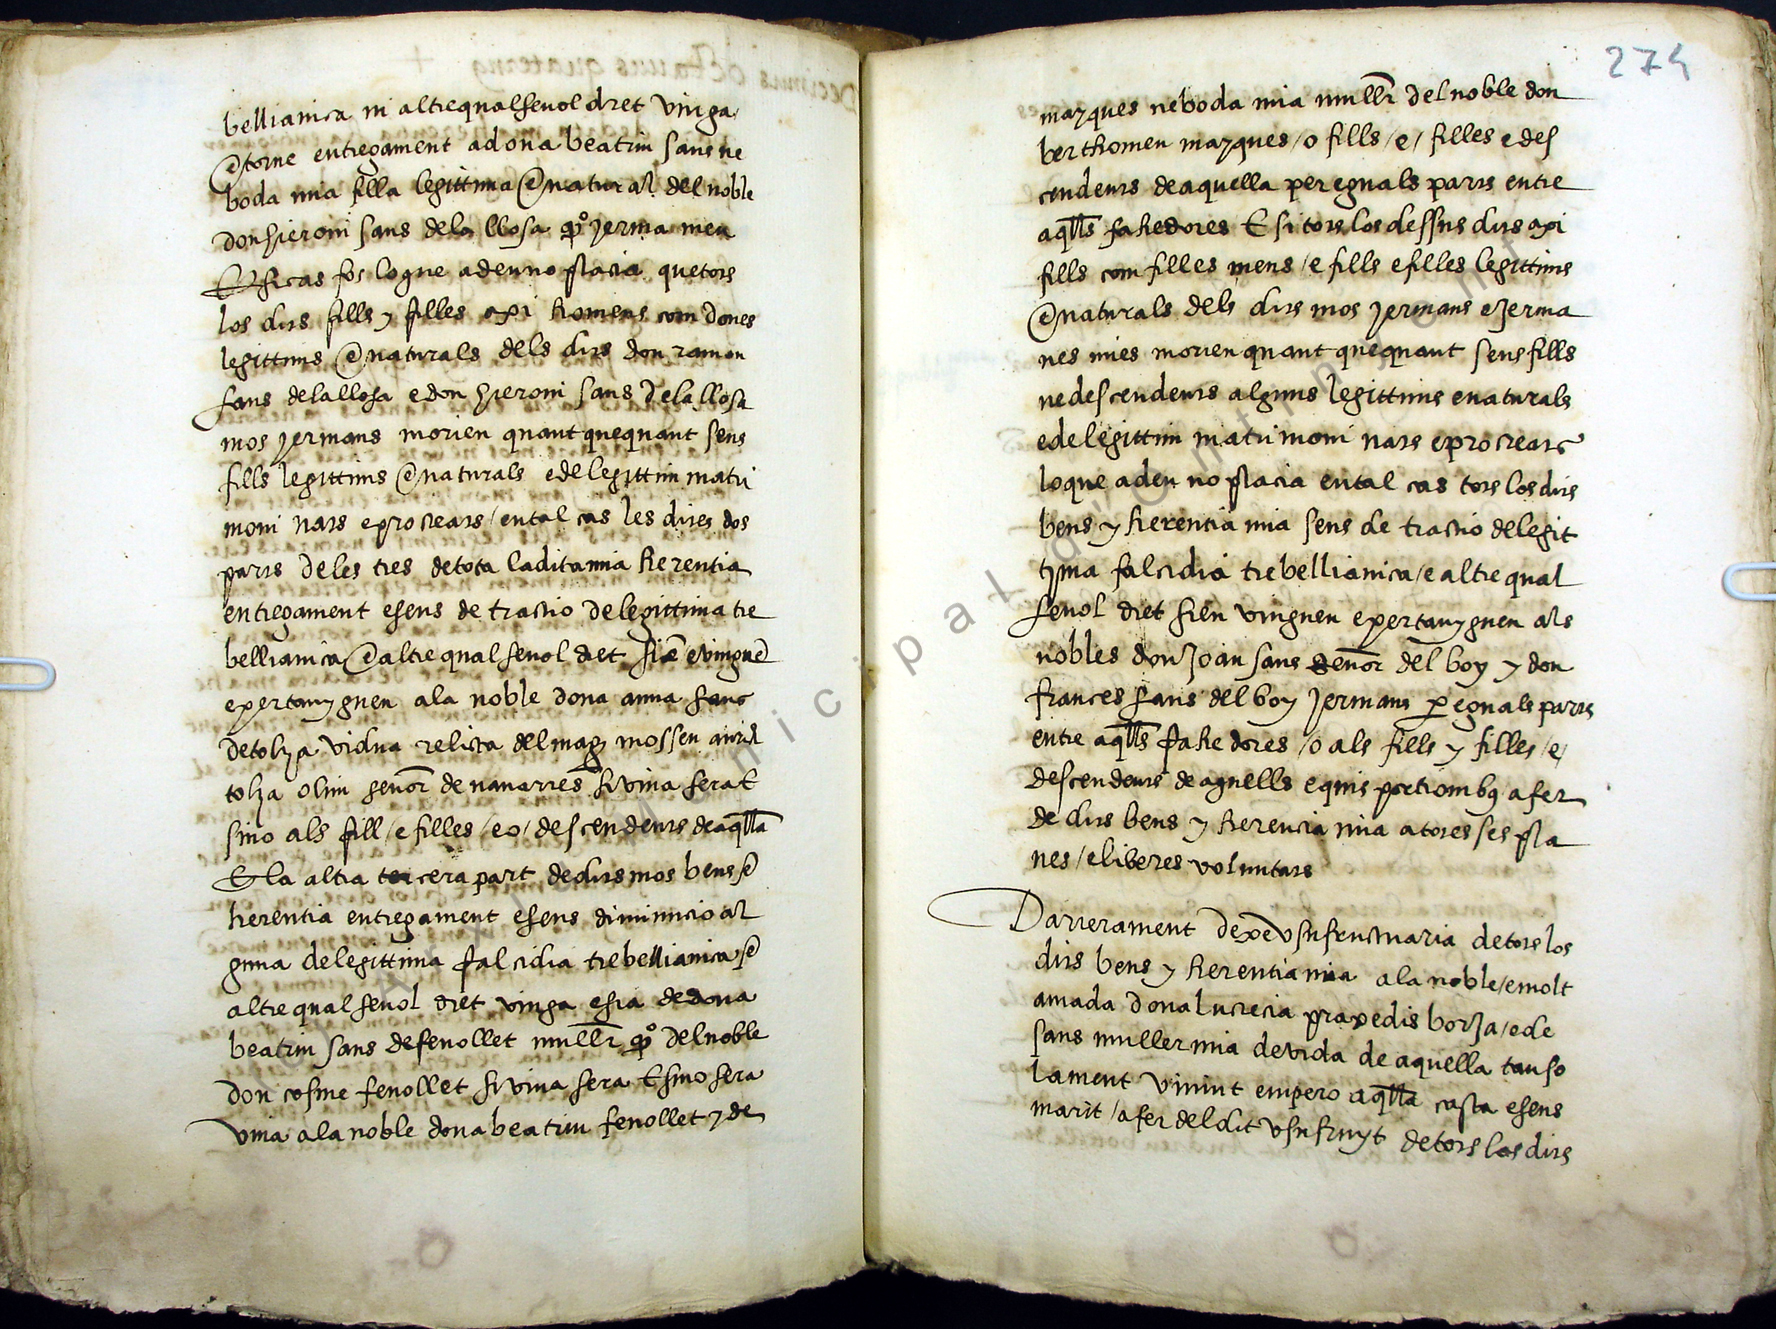 bellianica ni altre qualsevol dret vinga
e torne entregament a dona beatriu sans ne
boda mia filla legittima e natural del noble
don hieroni sans de la llosa qº jerma meu
E si cas fos lo que a deu no placia que tots
los dits fills y filles axi homens com dones
legittims e naturals dels dits don ramon
sans de la llosa e don hieroni sans de la llosa
mos jermans morien quant que quant sens
fills legittims e naturals e de legittim matri
moni nats e procreats / en tal cas les dites dos
parts de les tres de tota la dita mia herentia
entregament e sens detractio de legittima tre
bellianica e altre qualsevol dret sien e vinguen
e pertanyguen a la noble dona anna sans
de tolza vidua relicta del magch mossen
tolza olim senor de navarres si viva sera E
sino als fill / e filles / e o / descendents de aqlla
E la altra tercera part de dits mos bens e
herentia entregament e sens diminucio al
guna de legittima falcidia trebellianica e
altre qualsevol dret vinga e sia de dona
beatriu sans de fenollet mullr qº del noble
don cosme fenollet si viva sera E sino sera
viva a la noble dona beatriu fenollet y de
274
marques neboda mia mullr del noble don
berthomeu marques / o fills / e / filles e des
cendents de aquella per eguals parts entre
aqlls fahedores E si tots los dessus dits axi
fills com filles mens / e fills e filles legittims
e naturals dels dits mos jermans e jerma
nes mies morien quant que quant sens fills
ne descendents alguns legittims e naturals
e de legittim matrimoni nats e procreats
lo que a deu no placia en tal cas tots los dits
bens y herentia mia sens detractio de legit
tima falcidia trebellianica / e altre qual
sevol dret sien vinguen e pertanyguen als
nobles don Joan sans senor del boy y don
frances sans del boy jermans per eguals parts
entre aqlls fahedores / o als fills y filles / e /
descendents de aquells equis portionibq a fer
de dits bens y herencia mia a totes ses pla
nes / e liberes voluntats
Darrerament dexe usufructuaria de tots los
dits bens y herentia mia a la noble / e molt
amada dona lucrecia praxedis borja / e de
sans muller mia de vida de aquella tan so
lament vivint empero aqlla casta e sens
marit / a fer del dit usufruyt de tots los dits